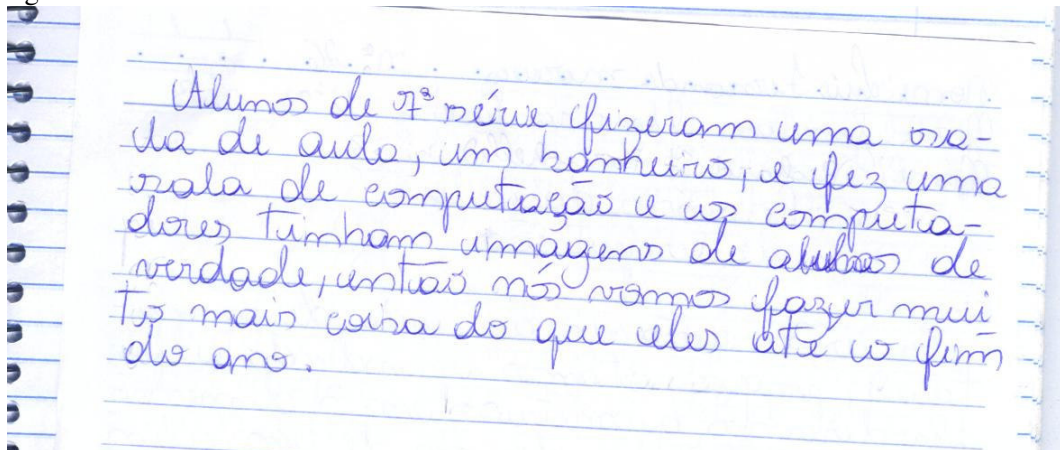 Alunos de 7ª série fizeram uma sa-
la de aula, um banheiro, e fez uma
sala de computação e os computa-
dores tinham imagens de de
verdade, então nós vamos fazer mui
to mais coisa do que eles até o fim
do ano.